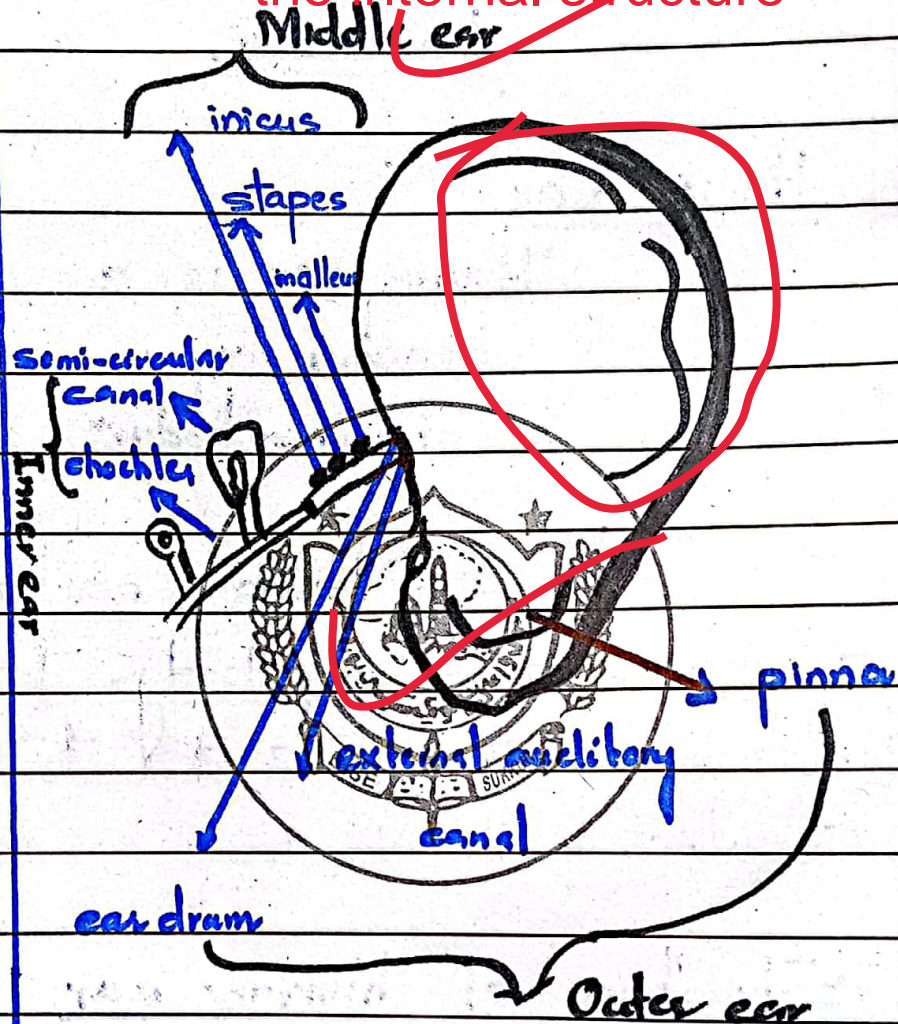 the internal structure
Middle ear
inicus
stapes
malleus
semi-circular
canal
chochlea
Inner ear
pinna
external auditory
canal
ear dram
Outer ear